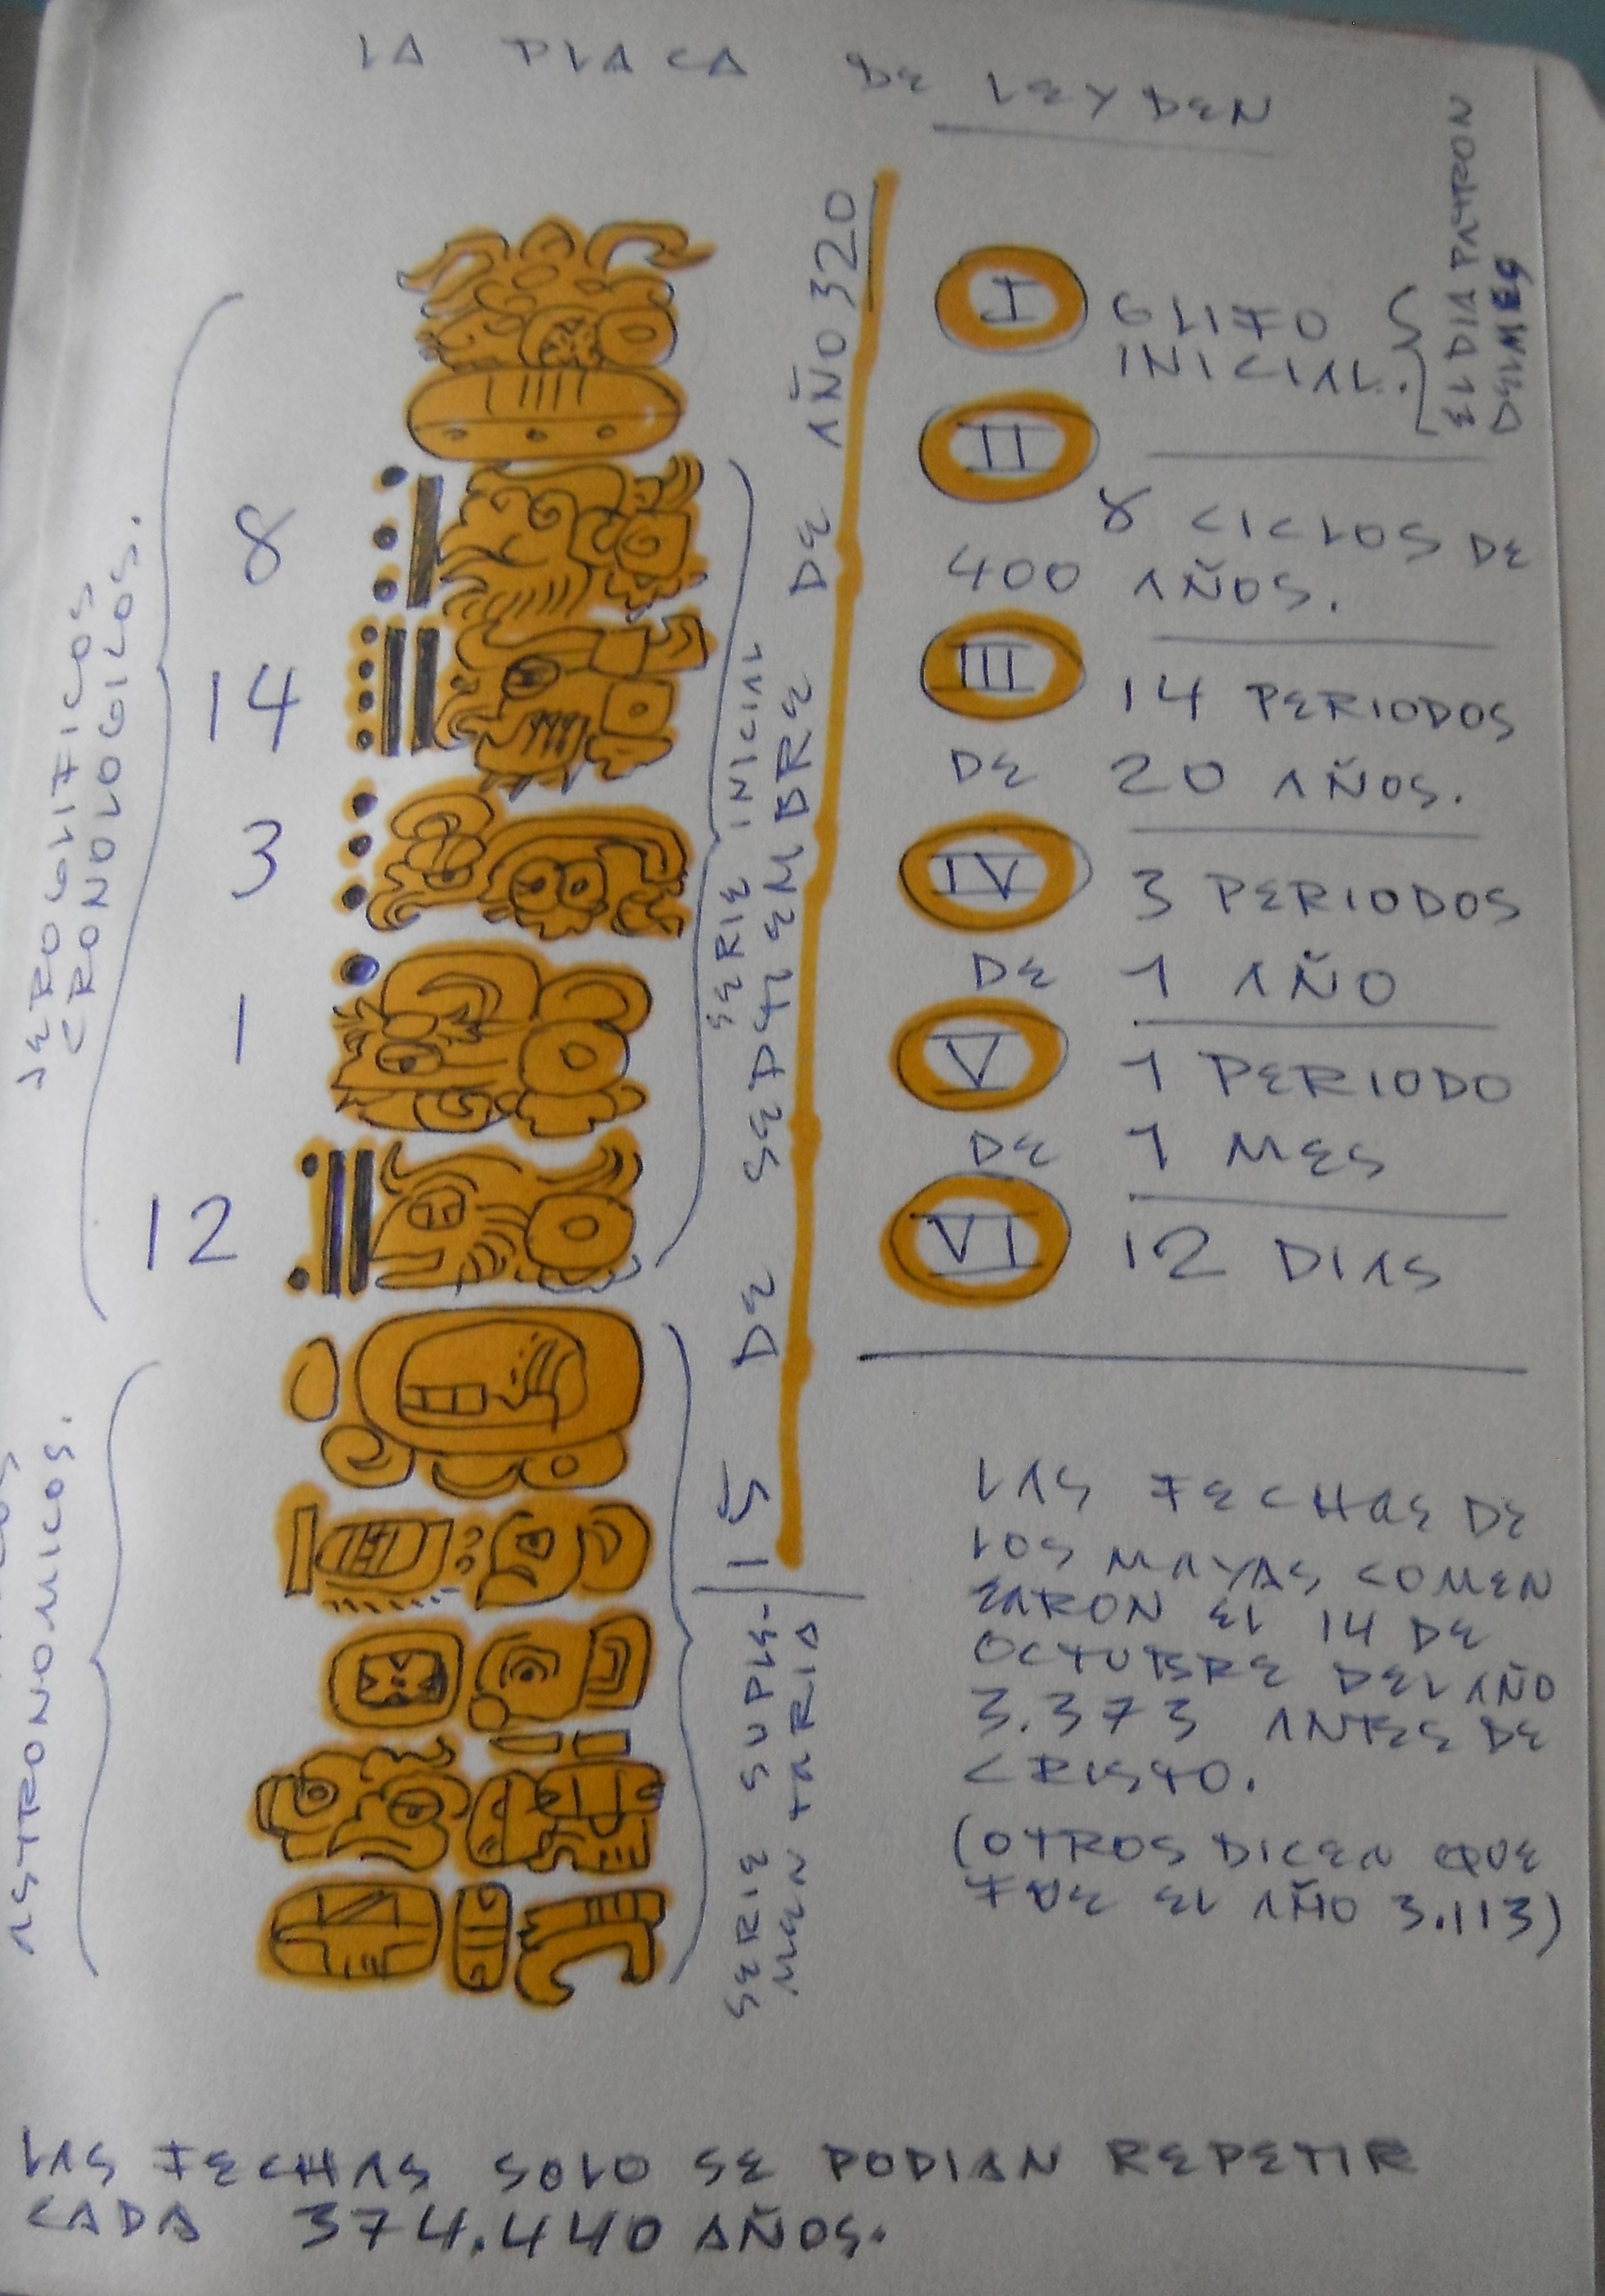 LA PLACA DE LEYDEN
JEROGLIFICOS
CRONOLOGICOS.
8
14
3
1
12
SERIE INICIAL
15 DE SEPTIEMBRE DE AÑO 320
I GLIFO
INICIAL.
EL DIA PATRON
DEL MES
II
8 CICLOS DE
400 AÑOS.
III 14 PERIODOS
DE 20 AÑOS.
IV 3 PERIODOS
DE 1 AÑO
V 1 PERIODO
DE 1 MES
VI 12 DIAS
ASTRONOMICOS.
SERIE SUPLE-
MENTARIA
LAS FECHAS DE
LOS MAYAS COMEN
ZARON EL 14 DE
OCTUBRE DEL AÑO
3.373 ANTES DE
CRISTO.
(OTROS DICEN QUE
FUE EL AÑO 3.113)
LAS FECHAS SOLO SE PODIAN REPETIR
CADA 374.440 AÑOS.